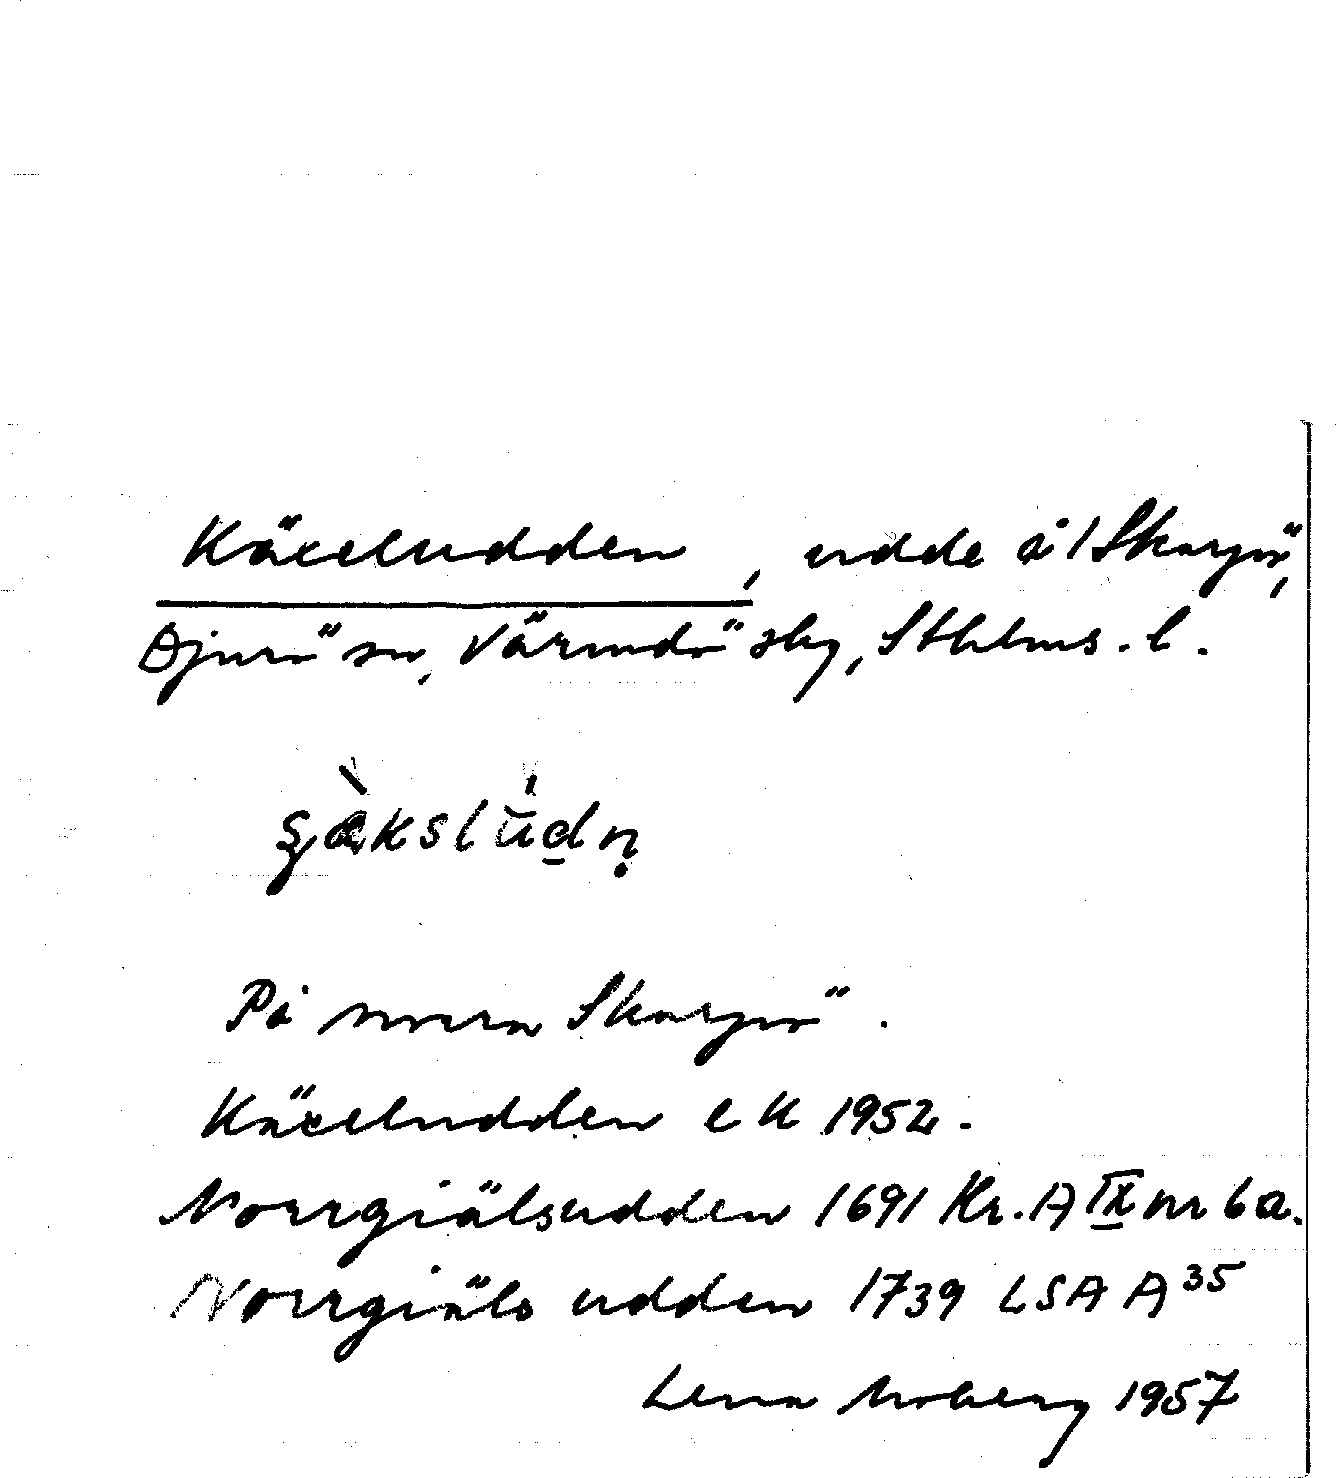 Käxeludden, udde å 1 Skarpö,
Djurö sn, Värmdö skg, Sthlms. l.
På norra Skarpö.
Käxeludden ek 1952.
Norrgiälsudden 1691 Kr. A IX nr 6a.
Norrgiäls udden 1739 LSA A 35
Lena Moberg 1957